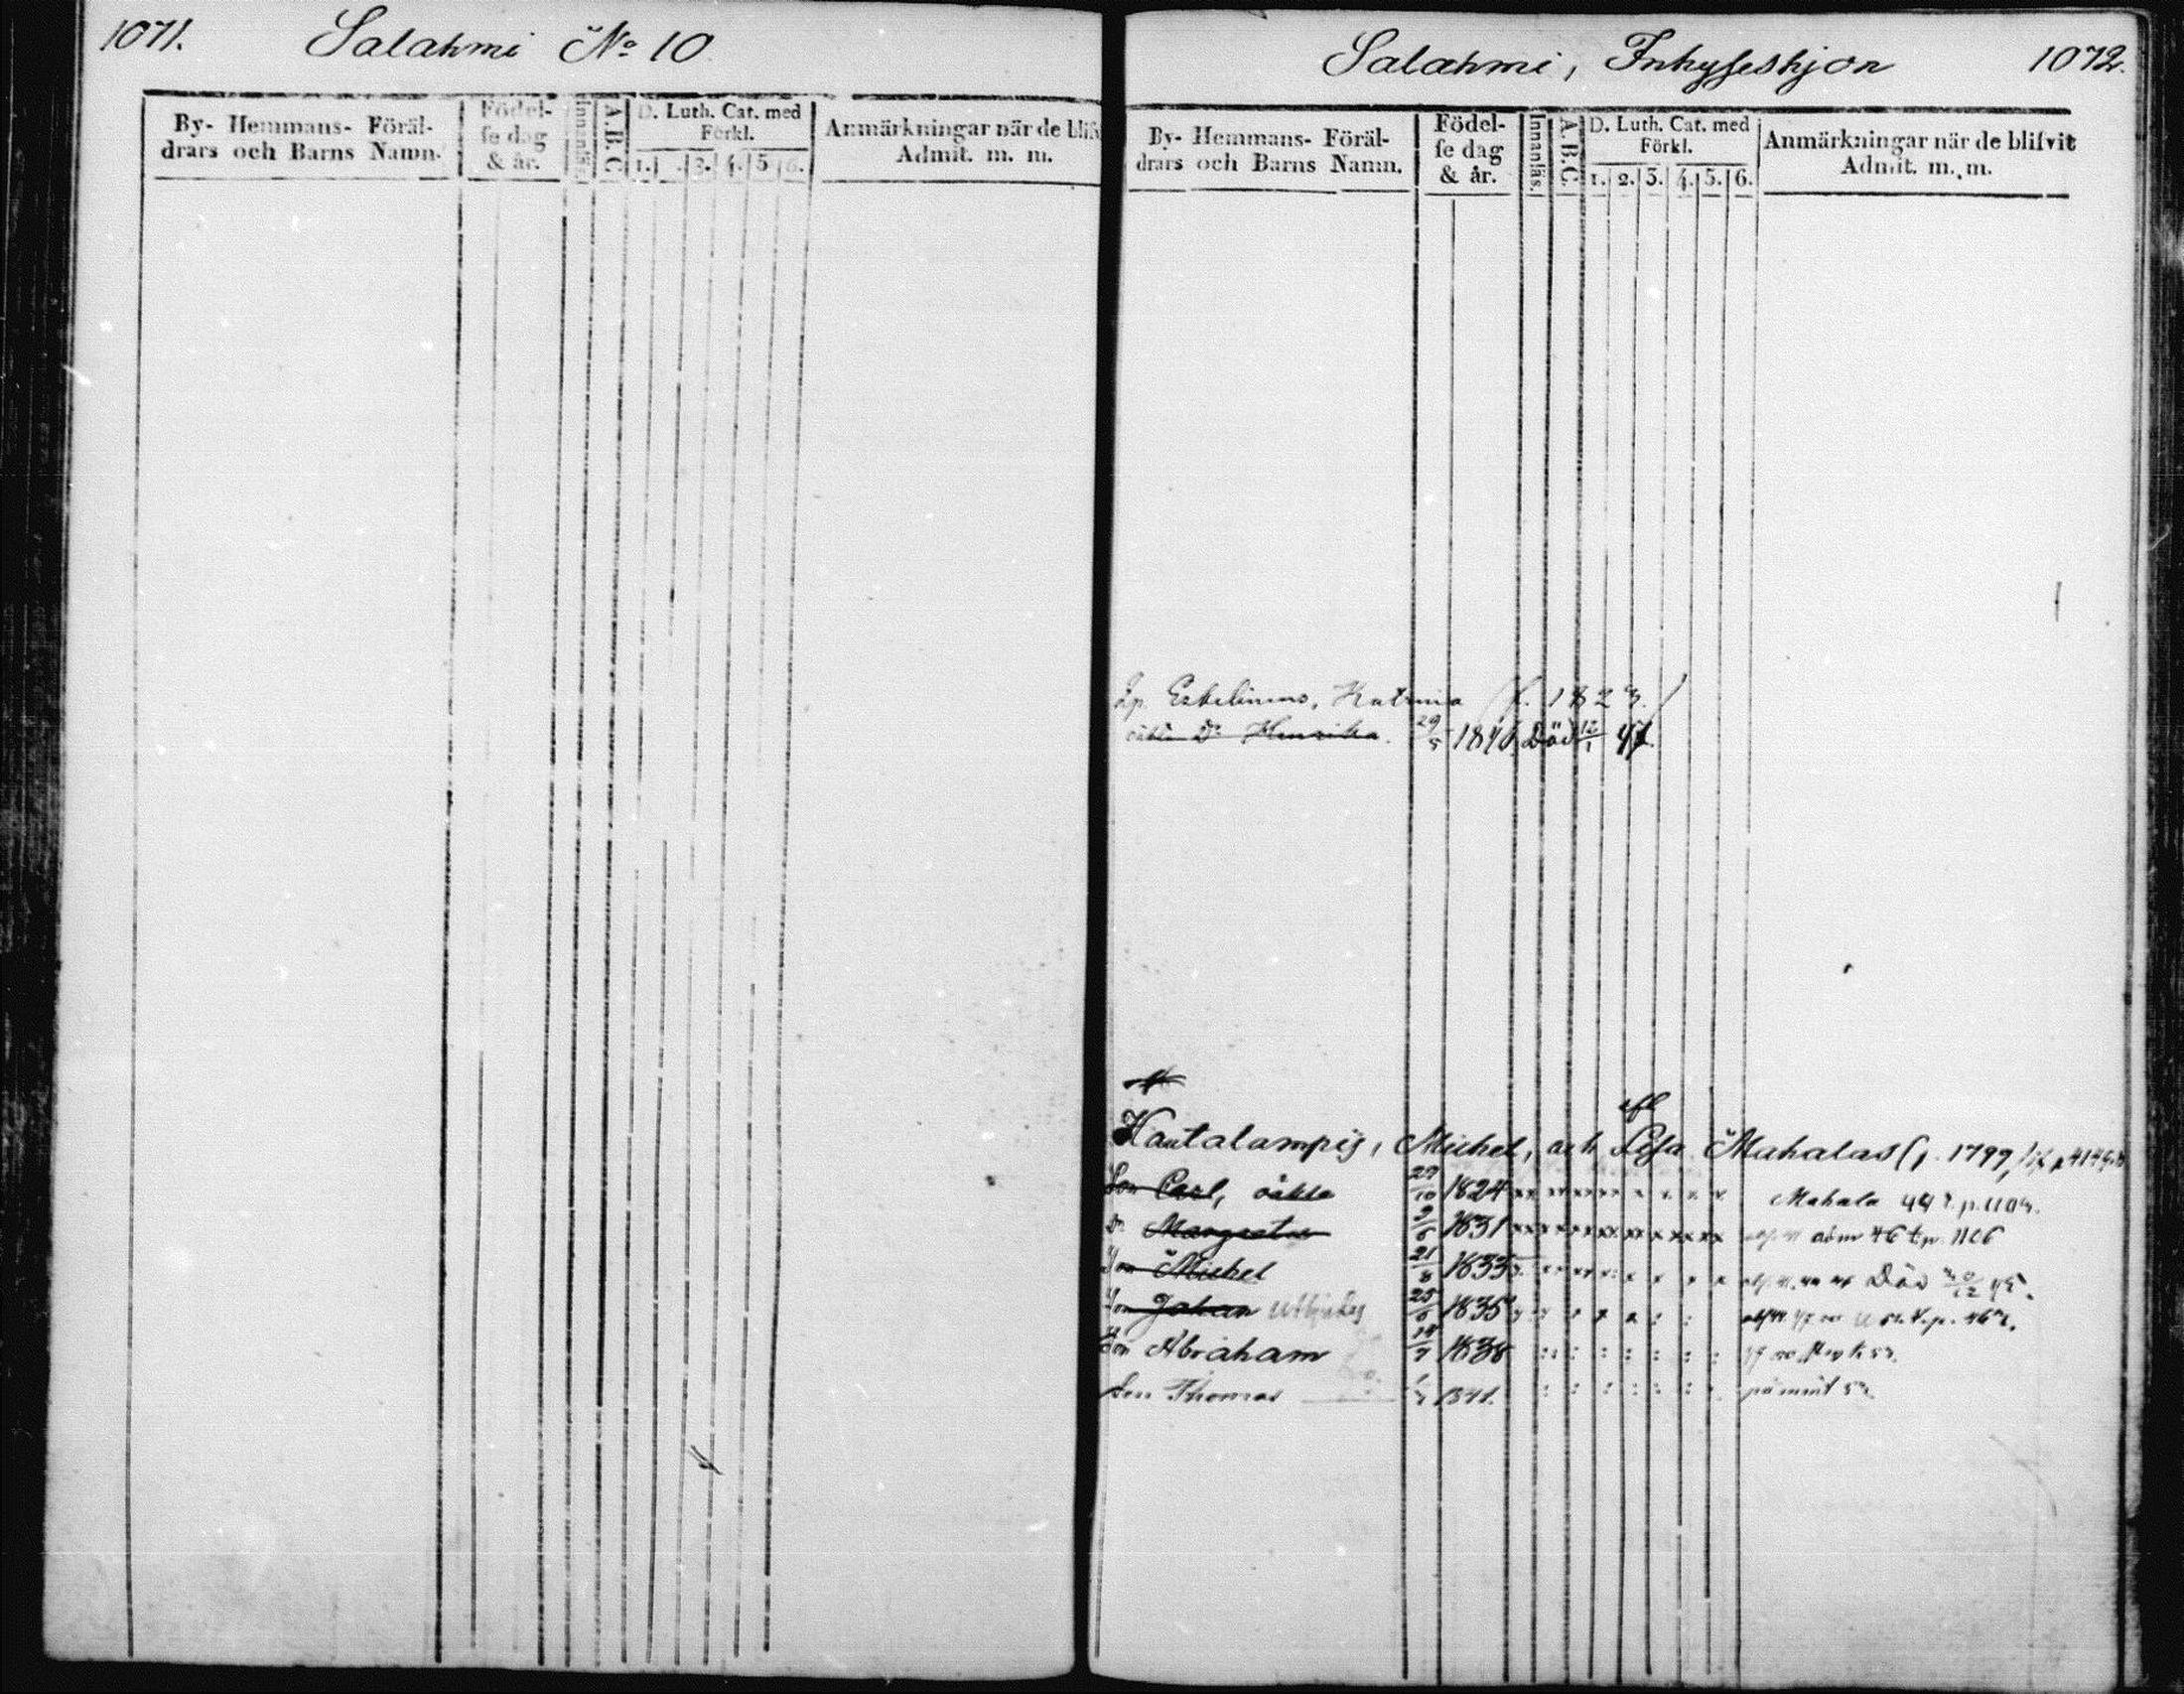 1071. Salahmi No 10.
By- Hemmans- Föräl-
drars och Barns Namn.
Födel-
se dag
& år.
Innanläs.
A.B.C.
D. Luth. Cat. med
Förkl.
1. 3. 4. 5 6.
Anmärkningar när de blifv
Admit. m. m.
Salahmi, Inhyseshjon 1072.
By- Hemmans- Föräl-
drars och Barns Namn.
Födel-
se dag
& år.
Innanläs.
A.B.C.
D. Luth. Cat. med
Förkl.
1. 2. 3. 4. 5. 6.
Anmärkningar när de blifvit
Admit. m. m.
Eskelinens, Katrina f. 1823.
Dr Henrika. 29/5 1846 Död 12/1 47.
Kautalampis, Michel, och Lisa Mahalas (f. 1799)
Son Carl, oäkta 27/10 1824 Mahala
Dr Margreta 9/6 1831 adm 46 1106
Son Michel 21/8 1833 Död
Son Johan 25/6 1835
Son Abraham 1838
Son Thomas 1841.